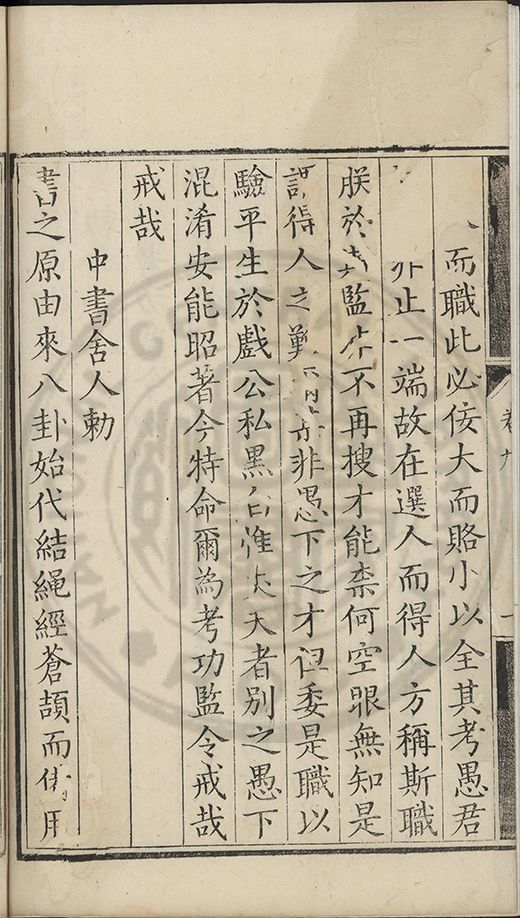 而職此必侫大而賂小以全其考愚君
止一端故在選人而得人方稱斯職
朕於監不再搜才能柰何空眼無知是
得人之難非愚下之才但委是職以
驗平生於戲公私黑白惟天者別之愚下
混淆安能昭著今特命爾為考功監令戒哉
戒哉
中書舍人勅
書之原由來八卦始代結繩經蒼頡而用
卷九
一